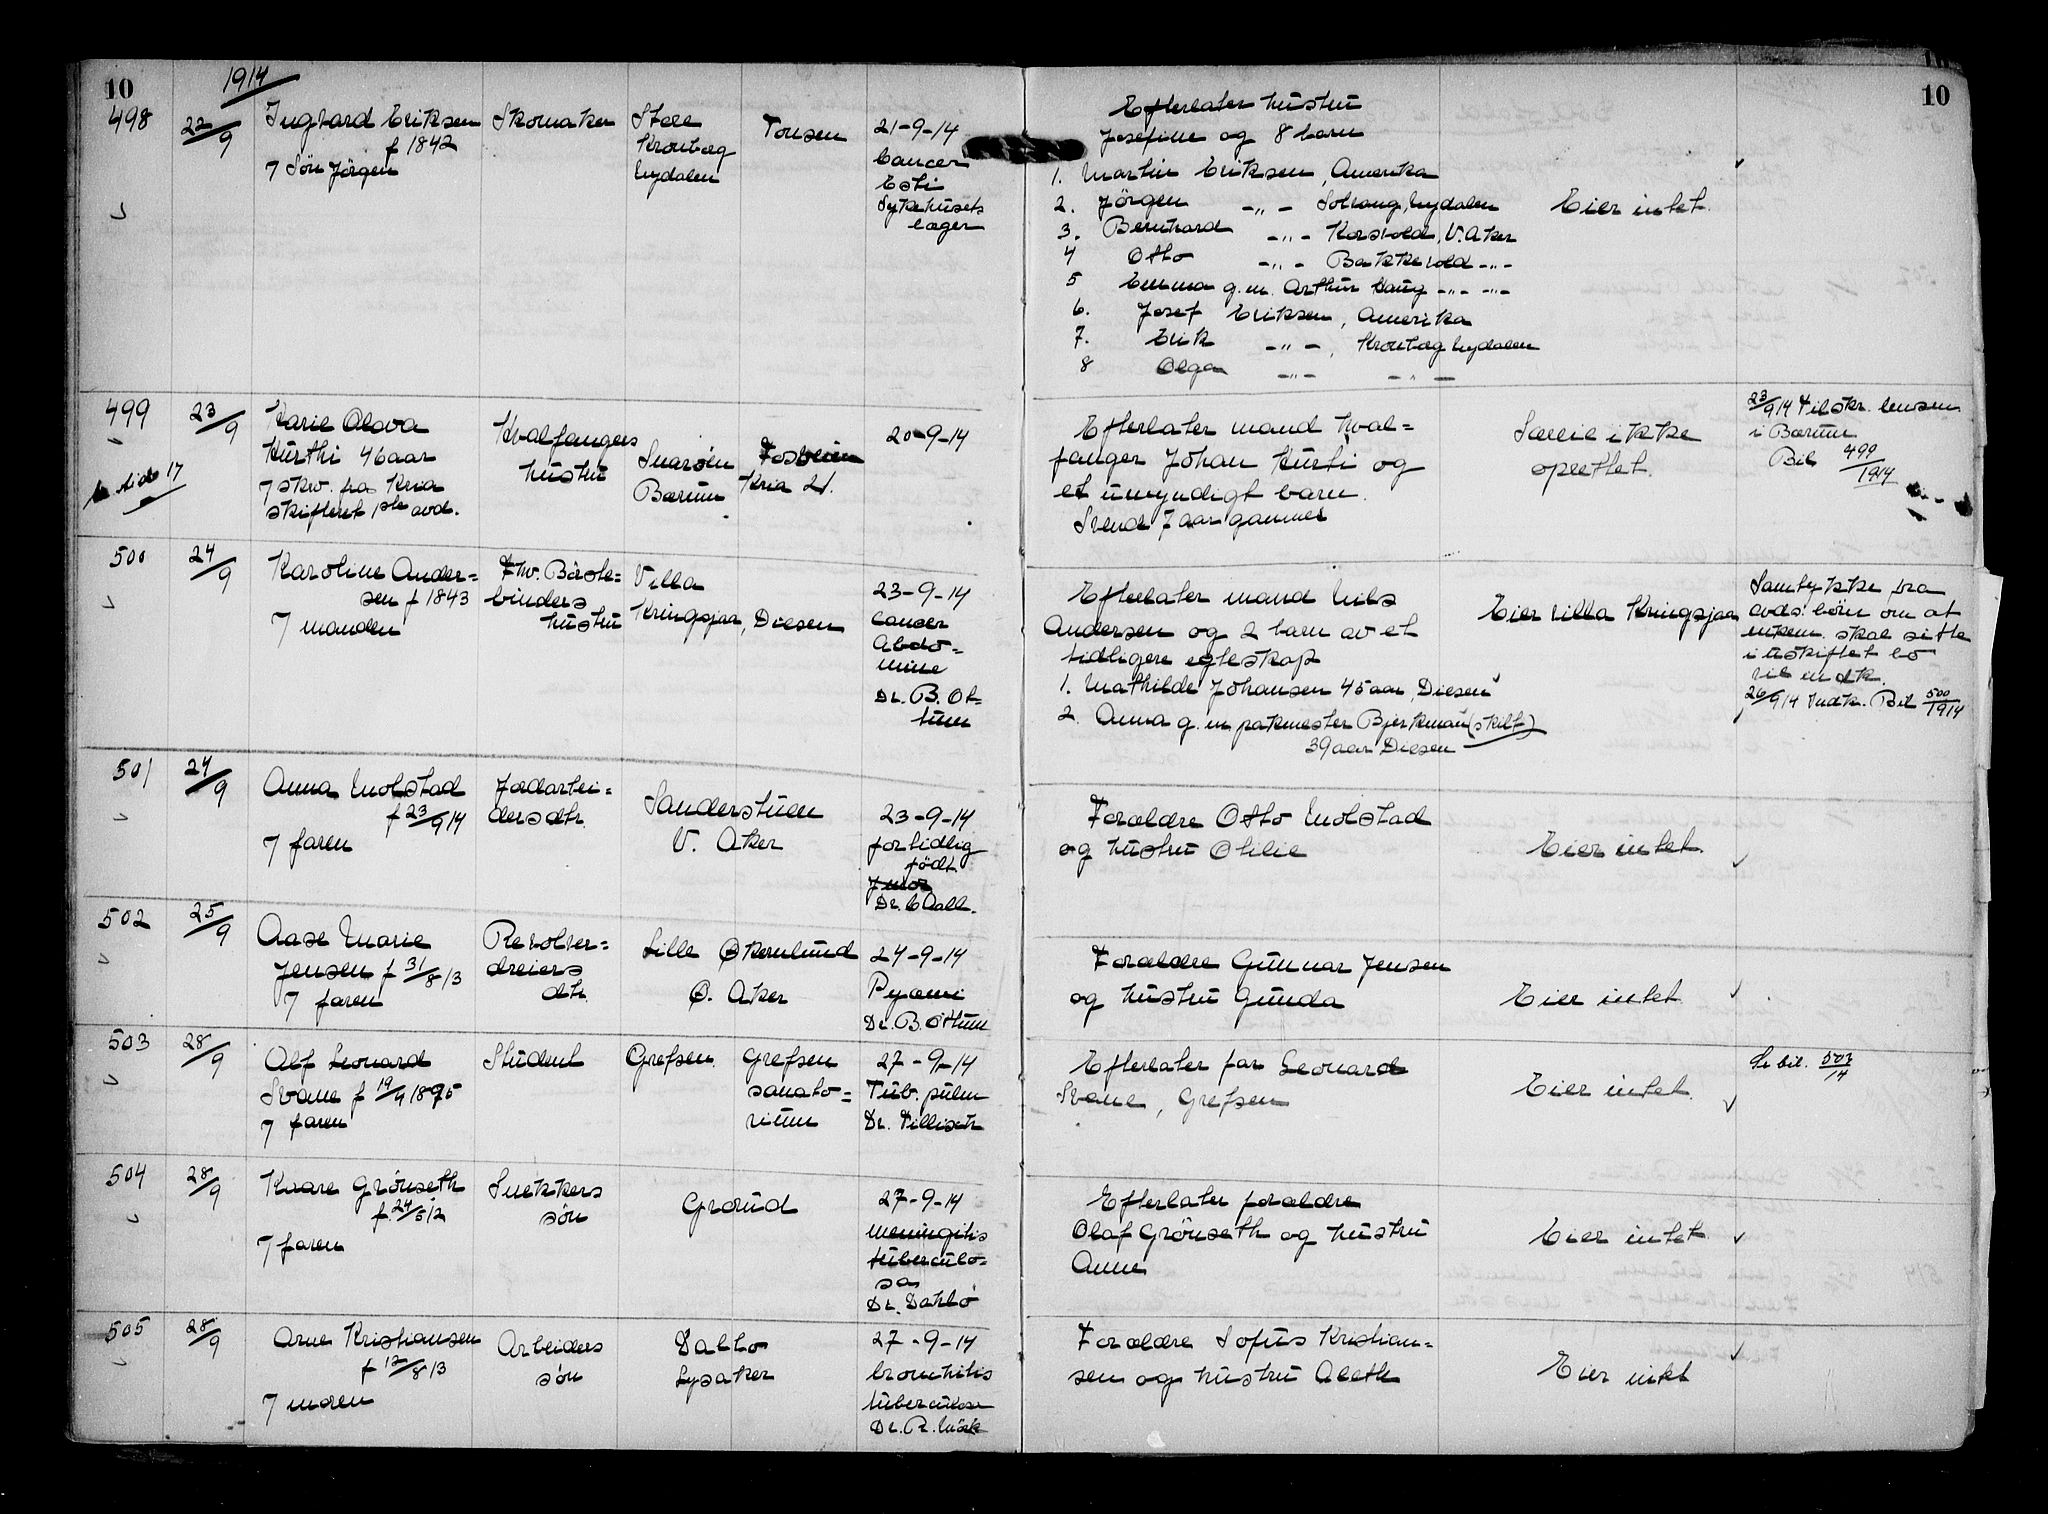 10
1914
498
22/9
Ingvard Eriksen
f 1842
7 Søn Jörgen
Skomaker
Krontæg
Nydalen
Tonsen
21-9-14
Cancer
Sykehusets
læger
Efterlater hustru
Josefine og 8 barn
1. Martin Eriksen, Amerika
2. Jörgen -"- Solvang, Nydalen
3. Bernhard -"- Korsvold, V. Aker
4 Otto -"- Bakkevold -"-
5 Emma g.m. Arthur Haug -"- -"-
6. Josef Eriksen, Amerika
7. Erik -"-, Krontæg Nydalen
8 Olga -"- -"-
Eier intet.
10
499
23/9
Karie Olava
Kurthi 46 aar
7 skr. fra Kria
skifteret 1ste avd.
Kvalfangers
hustru
Snarøen
Bærum
Fosveien
Kria 21.
20-9-14
Efterlater mand hval=
fanger Johan Kurti og
et umyndigt barn.
Svend 7 aar gammel
Særeie ikke
oprettet.
23/9 14 Tilskr. lensm
i Bærum
Bil 499/1914
500
24/9
Karoline Ander=
sen f 1843
7 manden
Fhv. Börste=
binders
hustru
Villa
Kringsjaa, Disen
23-9-14
Cancer
abdo=
mine
Dr. B. Ot-
tum
Efterlater mand Nils
Andersen og 2 barn av et
tidligere egteskap
1. Mathilde Johansen 45 aar, Diesen
2. Anna g. m pakmester Bjerkman (skilt)
39 aar Diesen
Eier villa Kringsjaa
Samtykke fra
avds. börn om at
enkem. skal sitte
i uskiftet bo
26/9 14 Indk. Bil 500/1914
501
24/9
Anna Molstad
f 23/9 14
7 faren
Jordarbei=
dersdtr.
Sanderstuen
V. Aker
23-9-14
for tidlig
födt
Dr. C Aall.
Foraldre Otto Molstad
og hustru Otilie
Eier intet.
502
25/9
Aase Marie
Jensen f 31/8 13
7 faren
Revolver=
dreiers
dtr.
Lille Økernlund
Ø. Aker
24-9-14
Pyæmi
Dr. B. Ottum
Foraldre Gunnar Jensen
og hustru Gunda
Eier intet
503
28/9
Alf Leonard
Svane f 19/9 1895
7 faren
Student
Grefsen
Grefsen
sanato=
rium
27-9-14
Tub. pulm
Dr. Tillisch
Efterlater far Leonard
Svane, Grefsen
Eier intet.
Se bil. 503/14
504
28/9
Kaare Grönseth
f. 24/5 12
7 faren
Snekkers
søn
Grorud
27-9-14
meningitis
tuberculo-
sa
Dr. Dahlö
Efterlater foraldre
Olaf Grönseth og hustru
Anne
Eier intet
505
28/9
Arne Kristiansen
f 12/8 13
7 moren
Arbeiders
søn
Lysaker
27-9-14
bronkitis
tuberculosa
Dr. R. Mörk
Foraldre Sofus Kristian=
sen og hustru Aleth
Eier intet